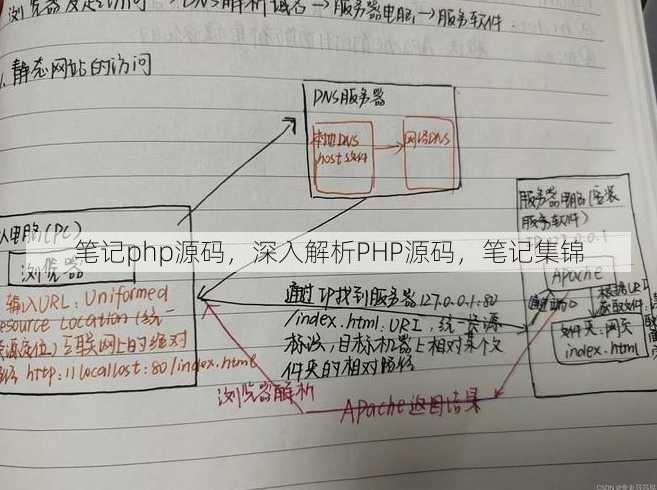 浏览器发起访问→DNS解析域名→服务器电脑→服务软件
1.静态网站的访问
DNS服务器
本地DNS
host文件
网络DNS
人电脑(PC)
浏览器
输入URL: Uniformed
esource Location(统一
资源定位)互联网上的绝对
路径 http://locallost:80/index.html
笔记php源码，深入解析PHP源码，笔记集锦
通过IP找到服务器127.0.0.1:80
/index.html.URI,统一资源
标识,目标机器上相对某个文
件夹的相对路径
服务器电脑(安装
服务软件)
127.0.0.1
Apache
通过
根据URI
获取文件
文件夹:网页
index.html
浏览器解析
Apache返回结果